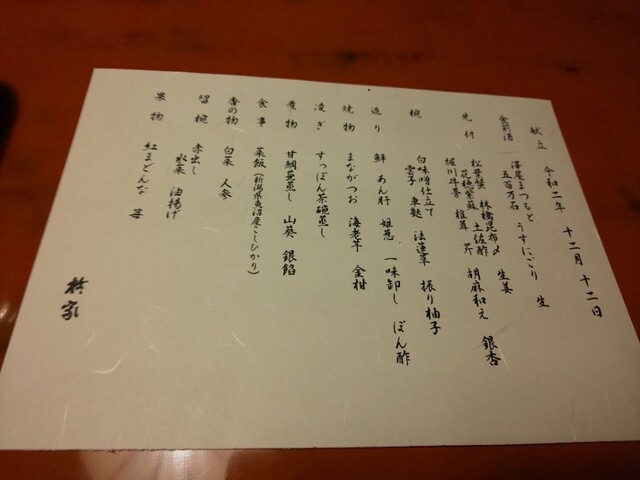 献立 令和二年 十二月十二日
食前酒 澤屋まつもと うすにごり 生
五百万石
先付 松葉蟹 林檎 昆布〆 生姜
花穂紫蘇 土佐酢
堀川牛蒡 椎茸 芹 胡麻和え 銀杏
椀 白味噌仕立て 法蓮草 振り柚子
雲子 車麩
造り 鮃 あん肝 一味卸し ぽん酢
焼物 まながつお 海老芋 金柑
凌ぎ すっぽん茶碗蒸し
煮物 甘鯛蕪蒸し 山葵 銀餡
食事 菜飯(新潟県魚沼産こしひかり)
香の物 白菜 人参
留椀 赤出し
水菜 油揚げ
果物 紅まどんな 苺